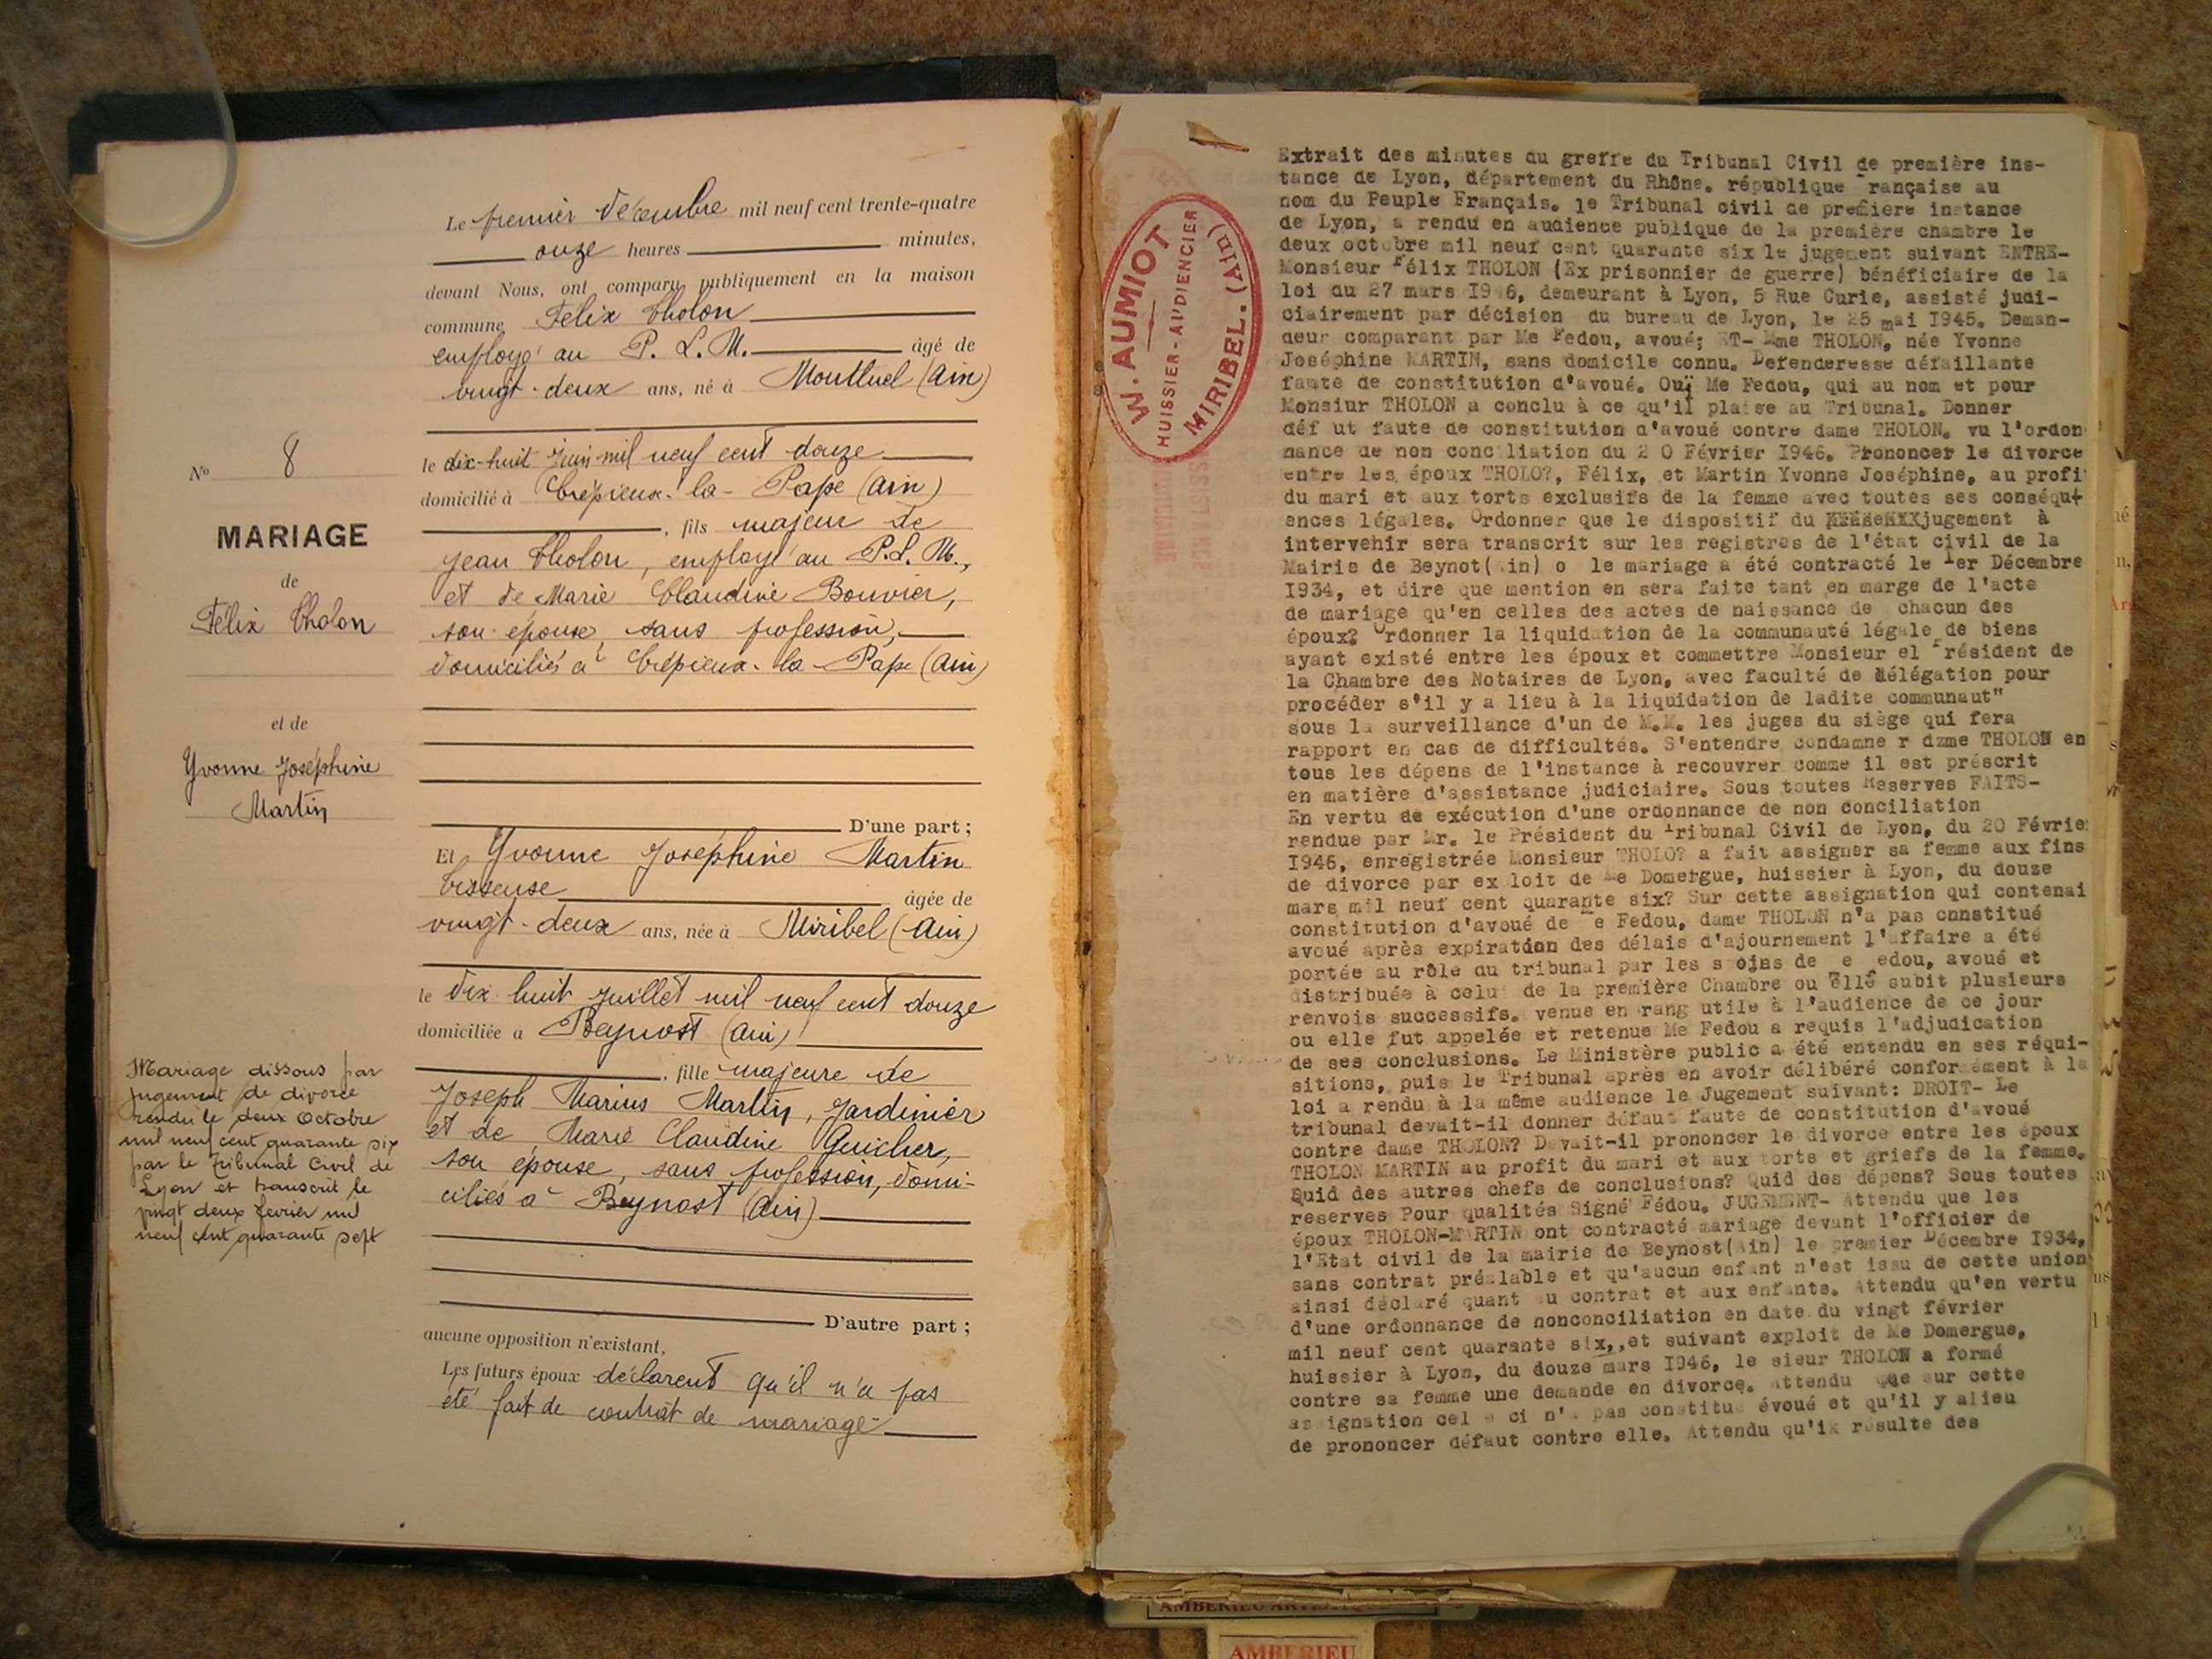 Le premier décembre mil neuf cent trente-quatre
onze heures minutes,
devant Nous, ont comparu publiquement en la maison
commune Félix Tholon
employé au P. L. M. âgé de
vingt-deux ans, né à Montluel (Ain)
le dix-huit juin mil neuf cent douze
domicilié à Crépieux-la-Pape (Ain)
, fils majeur de
Jean Tholon, employé au P. L. M.,
et de Marie Claudine Bouvier,
son épouse, sans profession,
domiciliés à Crépieux-la-Pape (Ain)
D'une part ;
Et Yvonne Joséphine Martin
Tisseuse âgée de
vingt-deux ans, née à Miribel (Ain)
le dix-huit juillet mil neuf cent douze
domiciliée a Beynost (Ain)
, fille majeure de
Joseph Marius Martin, jardinier
et de Marie Claudine Guicher,
son épouse, sans profession, domi-
ciliés à Beynost (Ain)
D'autre part ;
aucune opposition n'existant,
Les futurs époux déclarent qu'il n'a pas
été fait de contrat de mariage
No 8
MARIAGE
de
Félix Tholon
et de
Yvonne Joséphine
Martin
Mariage dissous par
jugement de divorce
rendu le deux Octobre
mil neuf cent quarante six
par le Tribunal Civil de
Lyon et transcrit le
vingt deux février mil
neuf cent quarante sept
W. AUMIOT
HUISSIER-AUDIENCIER
MIRIBEL. (AIN)
Extrait des minutes du greffe du Tribunal Civil de première ins-
tance de Lyon, département du Rhône. république rançaise au
nom du Peuple Français. le Tribunal civil de première instance
de Lyon, a rendu en audience publique de la première chambre le
deux octobre mil neuf cent quarante six le jugement suivant ENTRE-
Monsieur Félix THOLON (Ex prisonnier de guerre) bénéficiaire de la
loi du 27 mars I946, demeurant à Lyon, 5 Rue Curie, assisté judi-
ciairement par décision du bureau de Lyon, le 25 mai I945. Deman-
deur comparant par Me Fedou, avoué; ET- Mme THOLON, née Yvonne
Joséphine MARTIN, sans domicile connu. Defenderesse défaillante
faute de constitution d'avoué. Ouï Me Fedou, qui au nom et pour
Monsiur THOLON a conclu à ce qu'il plaise au Tribunal. Donner
déf ut faute de constitution d'avoué contre dame THOLON. vu l'ordon
nance de non conciliation du 2 0 Février I946. Prononcer le divorce
entre les époux THOLO?, Félix, et Martin Yvonne Joséphine, au profi
du mari et aux torts exclusifs de la femme avec toutes ses conséqu
ences légales. Ordonner que le dispositif du jugement à
intervehir sera transcrit sur les registres de l'état civil de la
Mairie de Beynot(Ain) o le mariage a été contracté le 1er Décembre
I934, et dire que mention en sera faite tant en marge de l'acte
de mariage qu'en celles des actes de naissance de chacun des
époux? Ordonner la liquidation de la communauté légale de biens
ayant existé entre les époux et commettre Monsieur el Président de
la Chambre des Notaires de Lyon, avec faculté de délégation pour
procéder s'il y a lieu à la liquidation de ladite communaut"
sous la surveillance d'un de M.M. les juges du siège qui fera
rapport en cas de difficultés. S'entendre condamne r dzme THOLON en
tous les dépens de l'instance à recouvrer comme il est préscrit
en matière d'assistance judiciaire. Sous toutes Reserves FAITS-
En vertu de exécution d'une ordonnance de non conciliation
rendue par Mr. le Président du Tribunal Civil de Lyon, du 20 Févrie
I946, enregistrée Monsieur THOLO? a fait assigner sa femme aux fins
de divorce par ex loit de Me Domergue, huissier à Lyon, du douze
mars mil neuf cent quarante six? Sur cette assignation qui contenai
constitution d'avoué de Me Fedou, dame THOLON n'a pas cnnstitué
avoué après expiration des délais d'ajournement l'affaire a été
portée au rôle du tribunal par les s oins de e edou, avoué et
distribuée à celui de la première Chambre ou elle subit plusieurs
renvois successifs. venue en rang utile à l'audience de ce jour
ou elle fut appelée et retenue Me Fedou a requis l'adjudication
de ses conclusions. Le Ministère public a été entendu en ses réqui-
sitions, puis le Tribunal après en avoir délibéré conformément à la
loi a rendu à la même audience le Jugement suivant: DROIT- Le
tribunal devait-il donner défaut faute de constitution d'avoué
contre dame THOLON? Devait-il prononcer le divorce entre les époux
THOLON MARTIN au profit du mari et aux torts et griefs de la femme.
Quid des autres chefs de conclusions? Quid des dépens? Sous toutes
reserves Pour qualités Signé Fédou. JUGEMENT- Attendu que les
époux THOLON-MARTIN ont contracté mariage devant l'officier de
l'Etat civil de la mairie de Beynost(Ain) le premier Décembre I934,
sans contrat préalable et qu'aucun enfant n'est issu de cette union
ainsi déclaré quant au contrat et aux enfants. Attendu qu'en vertu
d'une ordonnance de nonconciliation en date du vingt février
mil neuf cent quarante six,,et suivant exploit de Me Domergue,
huissier à Lyon, du douze mars I946, le sieur THOLON a formé
contre sa femme une demande en divorce. Attendu que sur cette
assignation cel e ci n'a pas constitué évoué et qu'il y alieu
de prononcer défaut contre elle. Attendu qu'ik résulte des
AMBERIEU